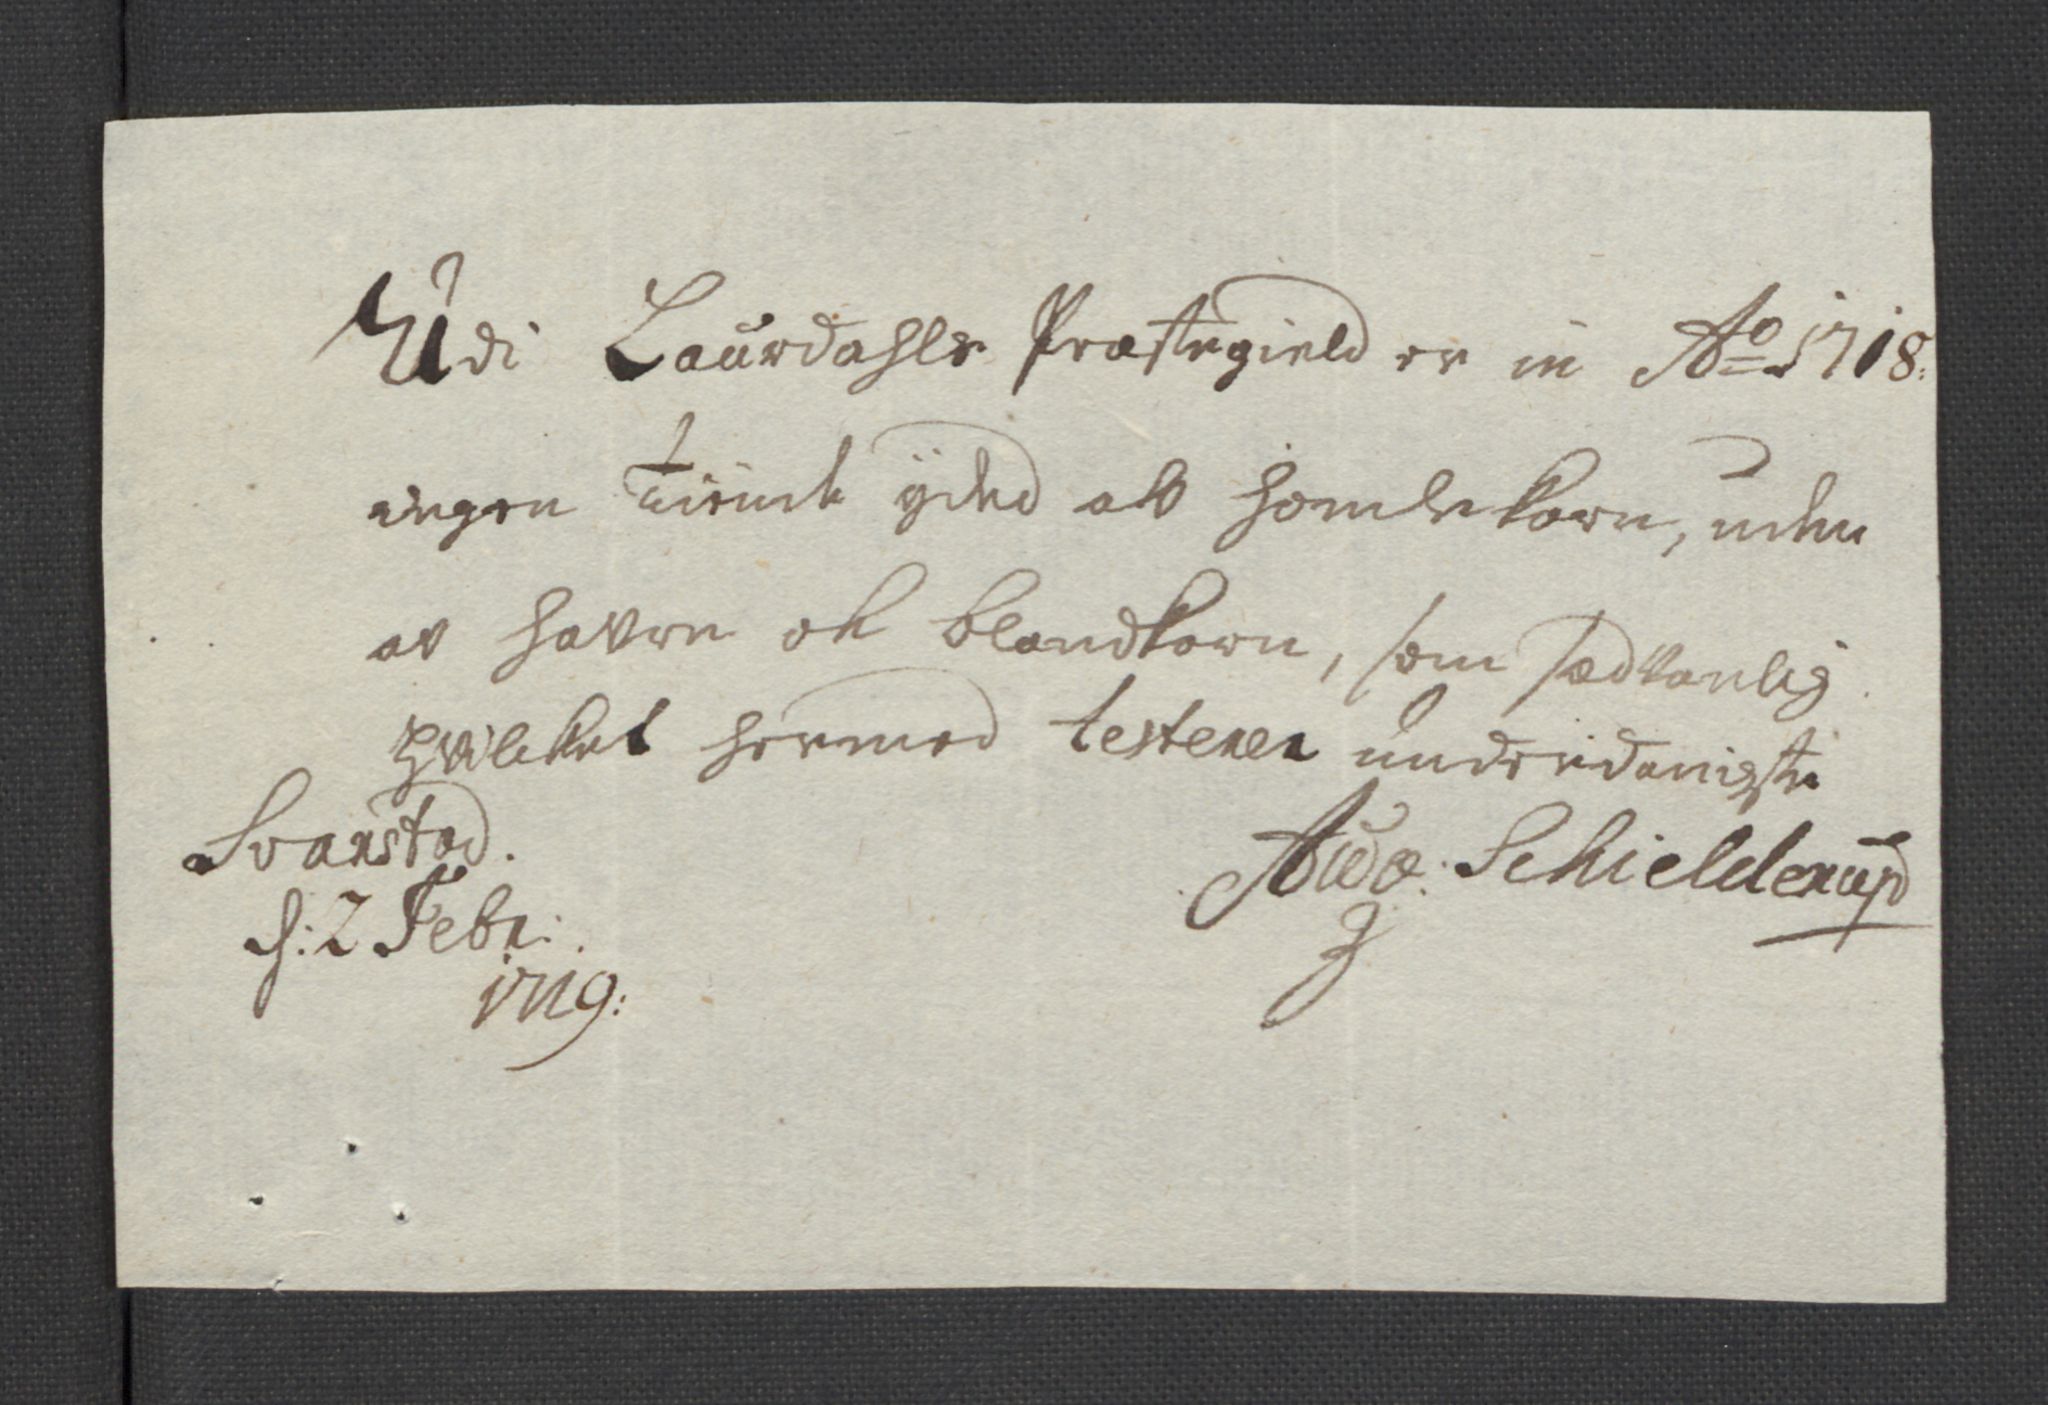 Udi Laurdahls Præstegield er in Ao 1718:
ingen tiende ÿded ab homlekorn, uden
av havre ok blandkorn, som sædvanlig
hvilket hermed testerer underdanigste
Svanstad.
d: 2 Febr:
1719:
And: Schielderup